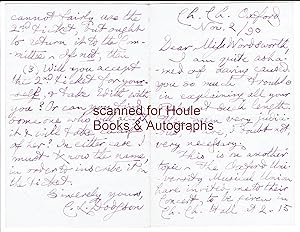 Ch. Ch. Oxford
Nov. 2/90
Dear Miss Wordsworth,
I am quite asha-
med of having caused
you so much trouble
in explaining all your
at such length
very
I doubt not,
very necessary.
This is on another
topic. The Oxford Uni-
versity Musical Union
have invited me to their
Concert, to be given in
Ch. Ch. Hall at 2.15
cannot fairly use the
2nd ticket, but ought
to return it to the Com-
mittee: and then
(3) Will you accept
the 2nd ticket for your-
self, & take with
you? Or can you
someone who
like the
of her? In either case I
must know the name,
in order to inscribe it on
the ticket.
Sincerely yours,
C. L. Dodgson
scanned for Houle
Books & Autographs